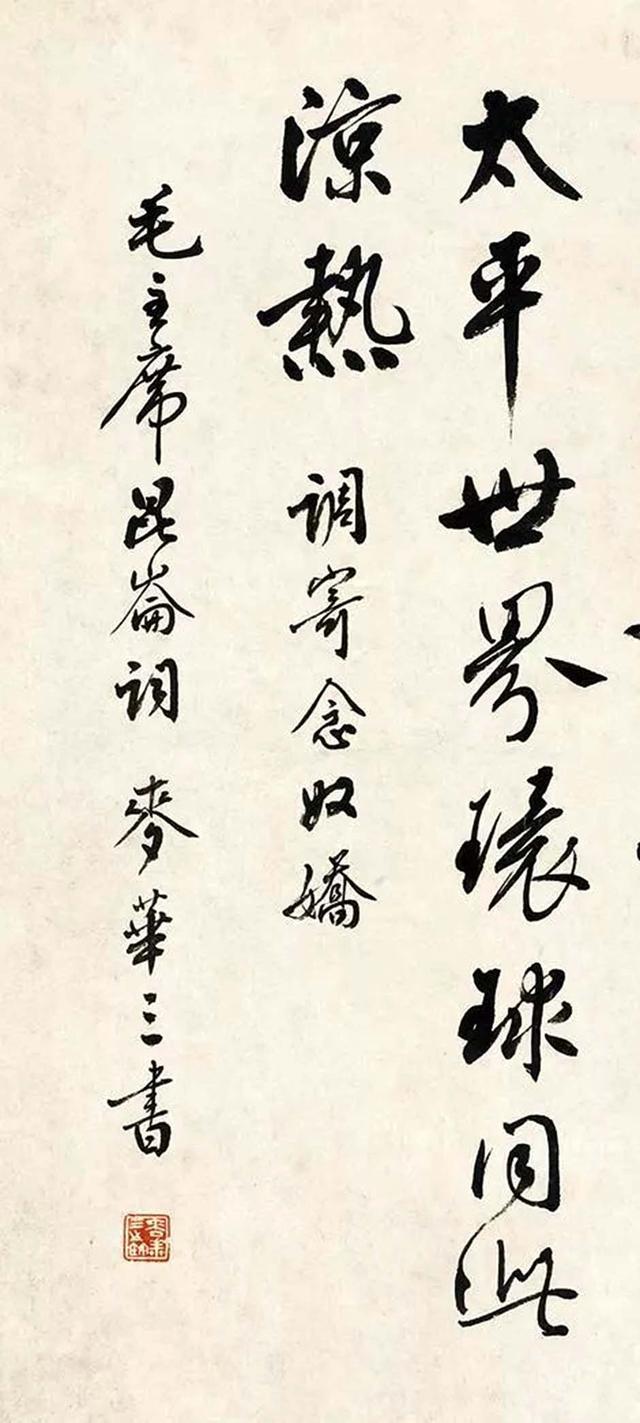 太平世界環球同此
涼熱 調寄念奴嬌
毛主席昆崙詞 麥華三書